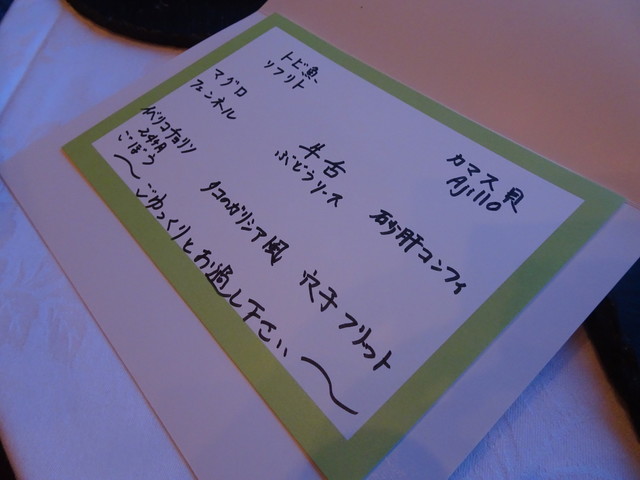 トビ魚
ソフリト
マグロ
フェンネル
イベリコチョリソ
ごぼう
牛舌
ぶどうソース
カマス貝
Ajillo
タコのガリシア風
砂肝コンフィ
穴子フリット
〜ごゆっくりとお過し下さい〜